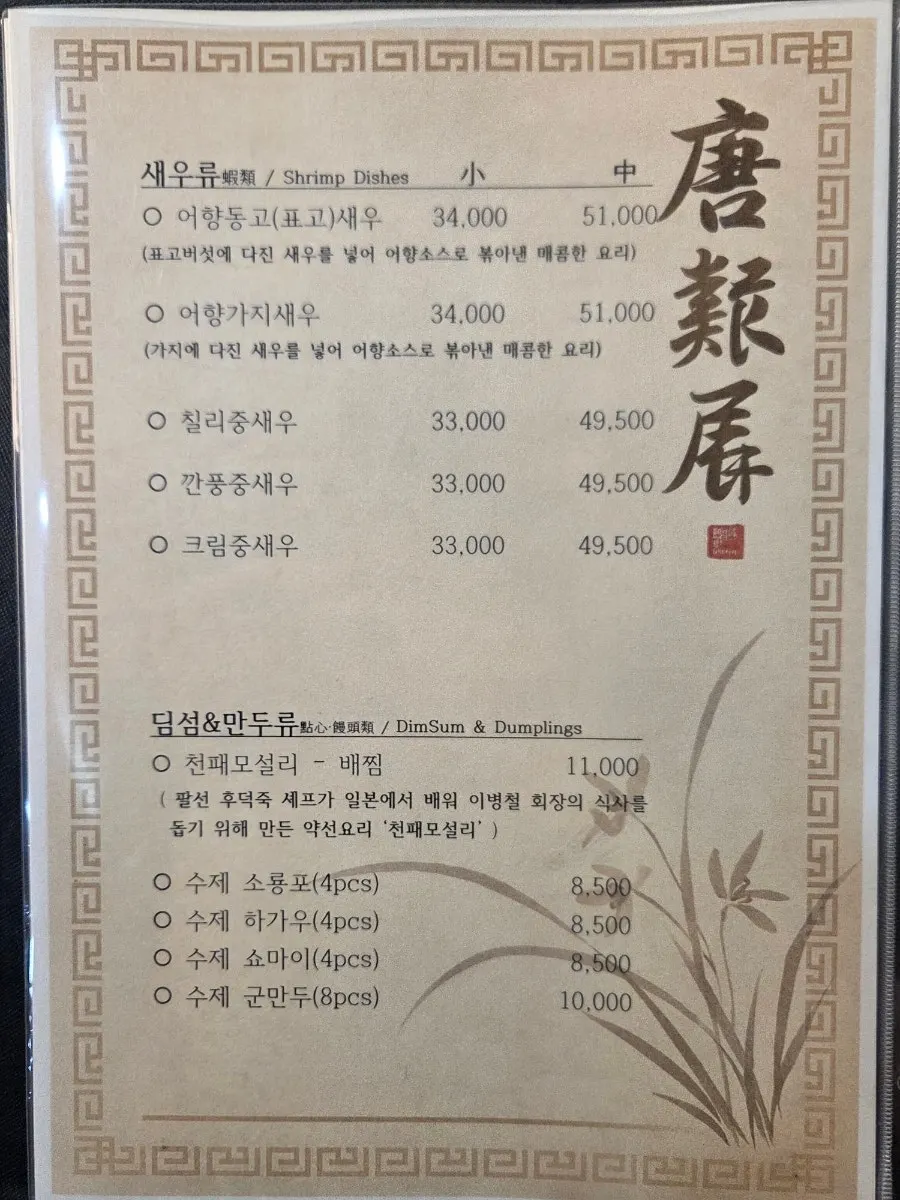 새우류蝦類 / Shrimp Dishes 小 中
○ 어향동고(표고)새우 34,000 51,000
(표고버섯에 다진 새우를 넣어 어향소스로 볶아낸 매콤한 요리)
○ 어향가지새우 34,000 51,000
(가지에 다진 새우를 넣어 어향소스로 볶아낸 매콤한 요리)
○ 칠리중새우 33,000 49,500
○ 깐풍중새우 33,000 49,500
○ 크림중새우 33,000 49,500
딤섬&만두류點心·饅頭類 / DimSum & Dumplings
○ 천패모설리 - 배찜 11,000
( 팔선 후덕죽 셰프가 일본에서 배워 이병철 회장의 식사를
돕기 위해 만든 약선요리 ‘천패모설리’ )
○ 수제 소룡포(4pcs) 8,500
○ 수제 하가우(4pcs) 8,500
○ 수제 쇼마이(4pcs) 8,500
○ 수제 군만두(8pcs) 10,000
唐